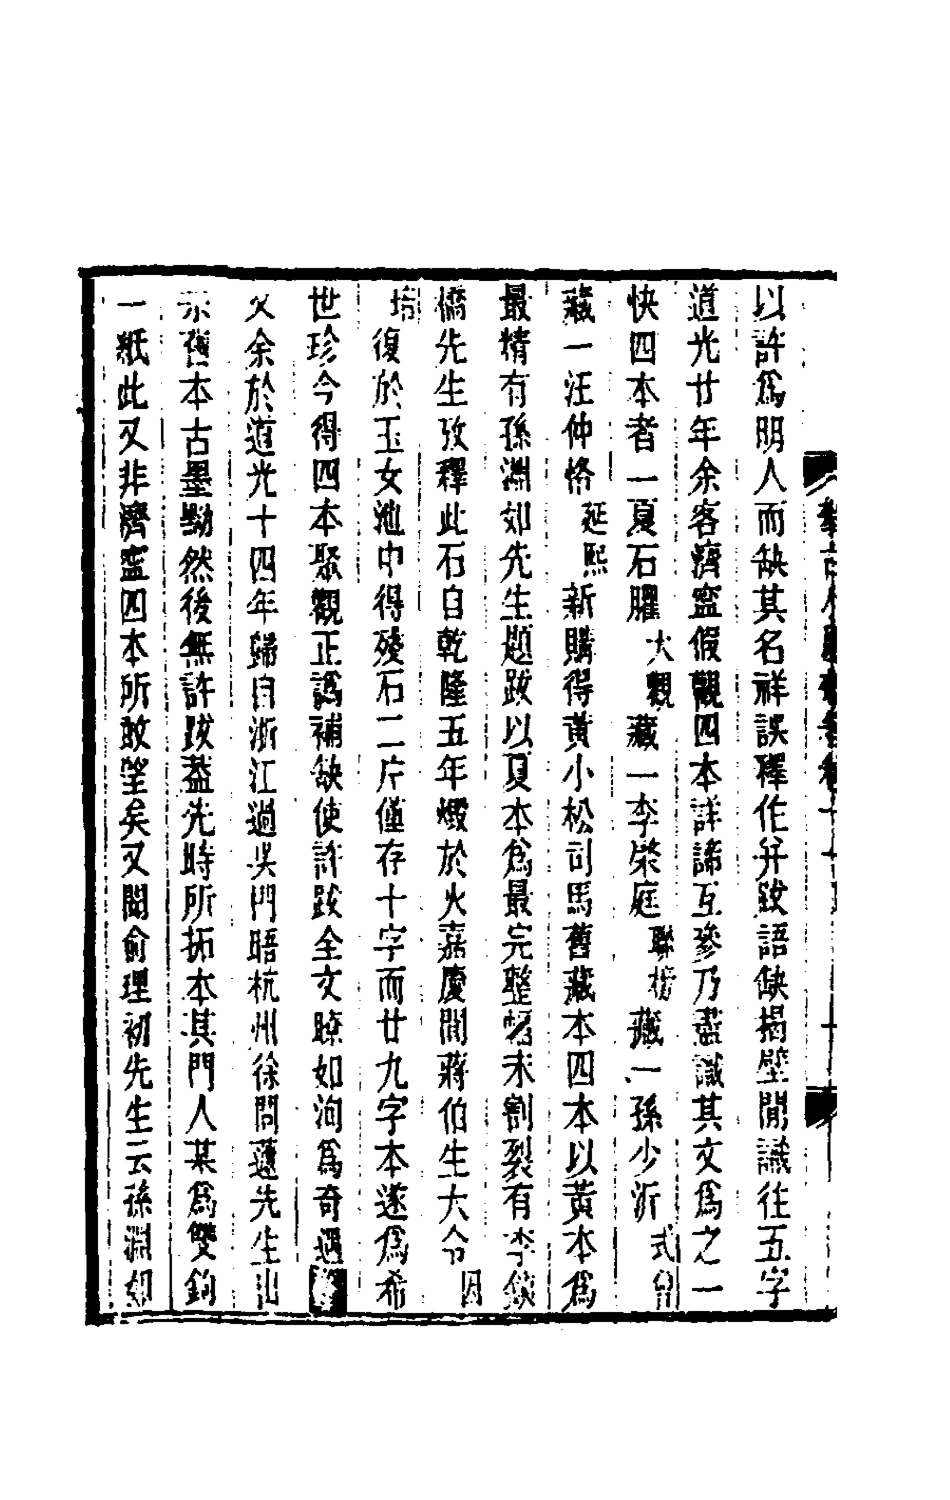 以許爲明人而缺其名祥誤釋作幷跋語缺揭壁間識往五字
道光廿年余客濟寧假觀四本詳諦互參乃盡識其文爲之一
快四本者一夏石臞大觀藏一李榮庭聯榜藏一孫少沂式曾
藏一汪仲恪延熙新購得黃小松司馬舊藏本四本以黃本爲
最精有孫淵如先生題跋以夏本爲最完整幅未割裂有李鐵
橋先生攷釋此石自乾隆五年燬於火嘉慶間蔣伯生大令因
培復於玉女池中得殘石二片僅存十字而廿九字本遂爲希
世珍今得四本聚觀正譌補缺使許跋全文瞭如洵爲奇遇
又余於道光十四年歸自浙江過吳門晤杭州徐問蘧先生出
示舊本古墨黝然後無許跋蓋先時所拓本其門人某爲雙鉤
一紙此又非濟寧四本所敢望矣又聞俞理初先生云孫淵如